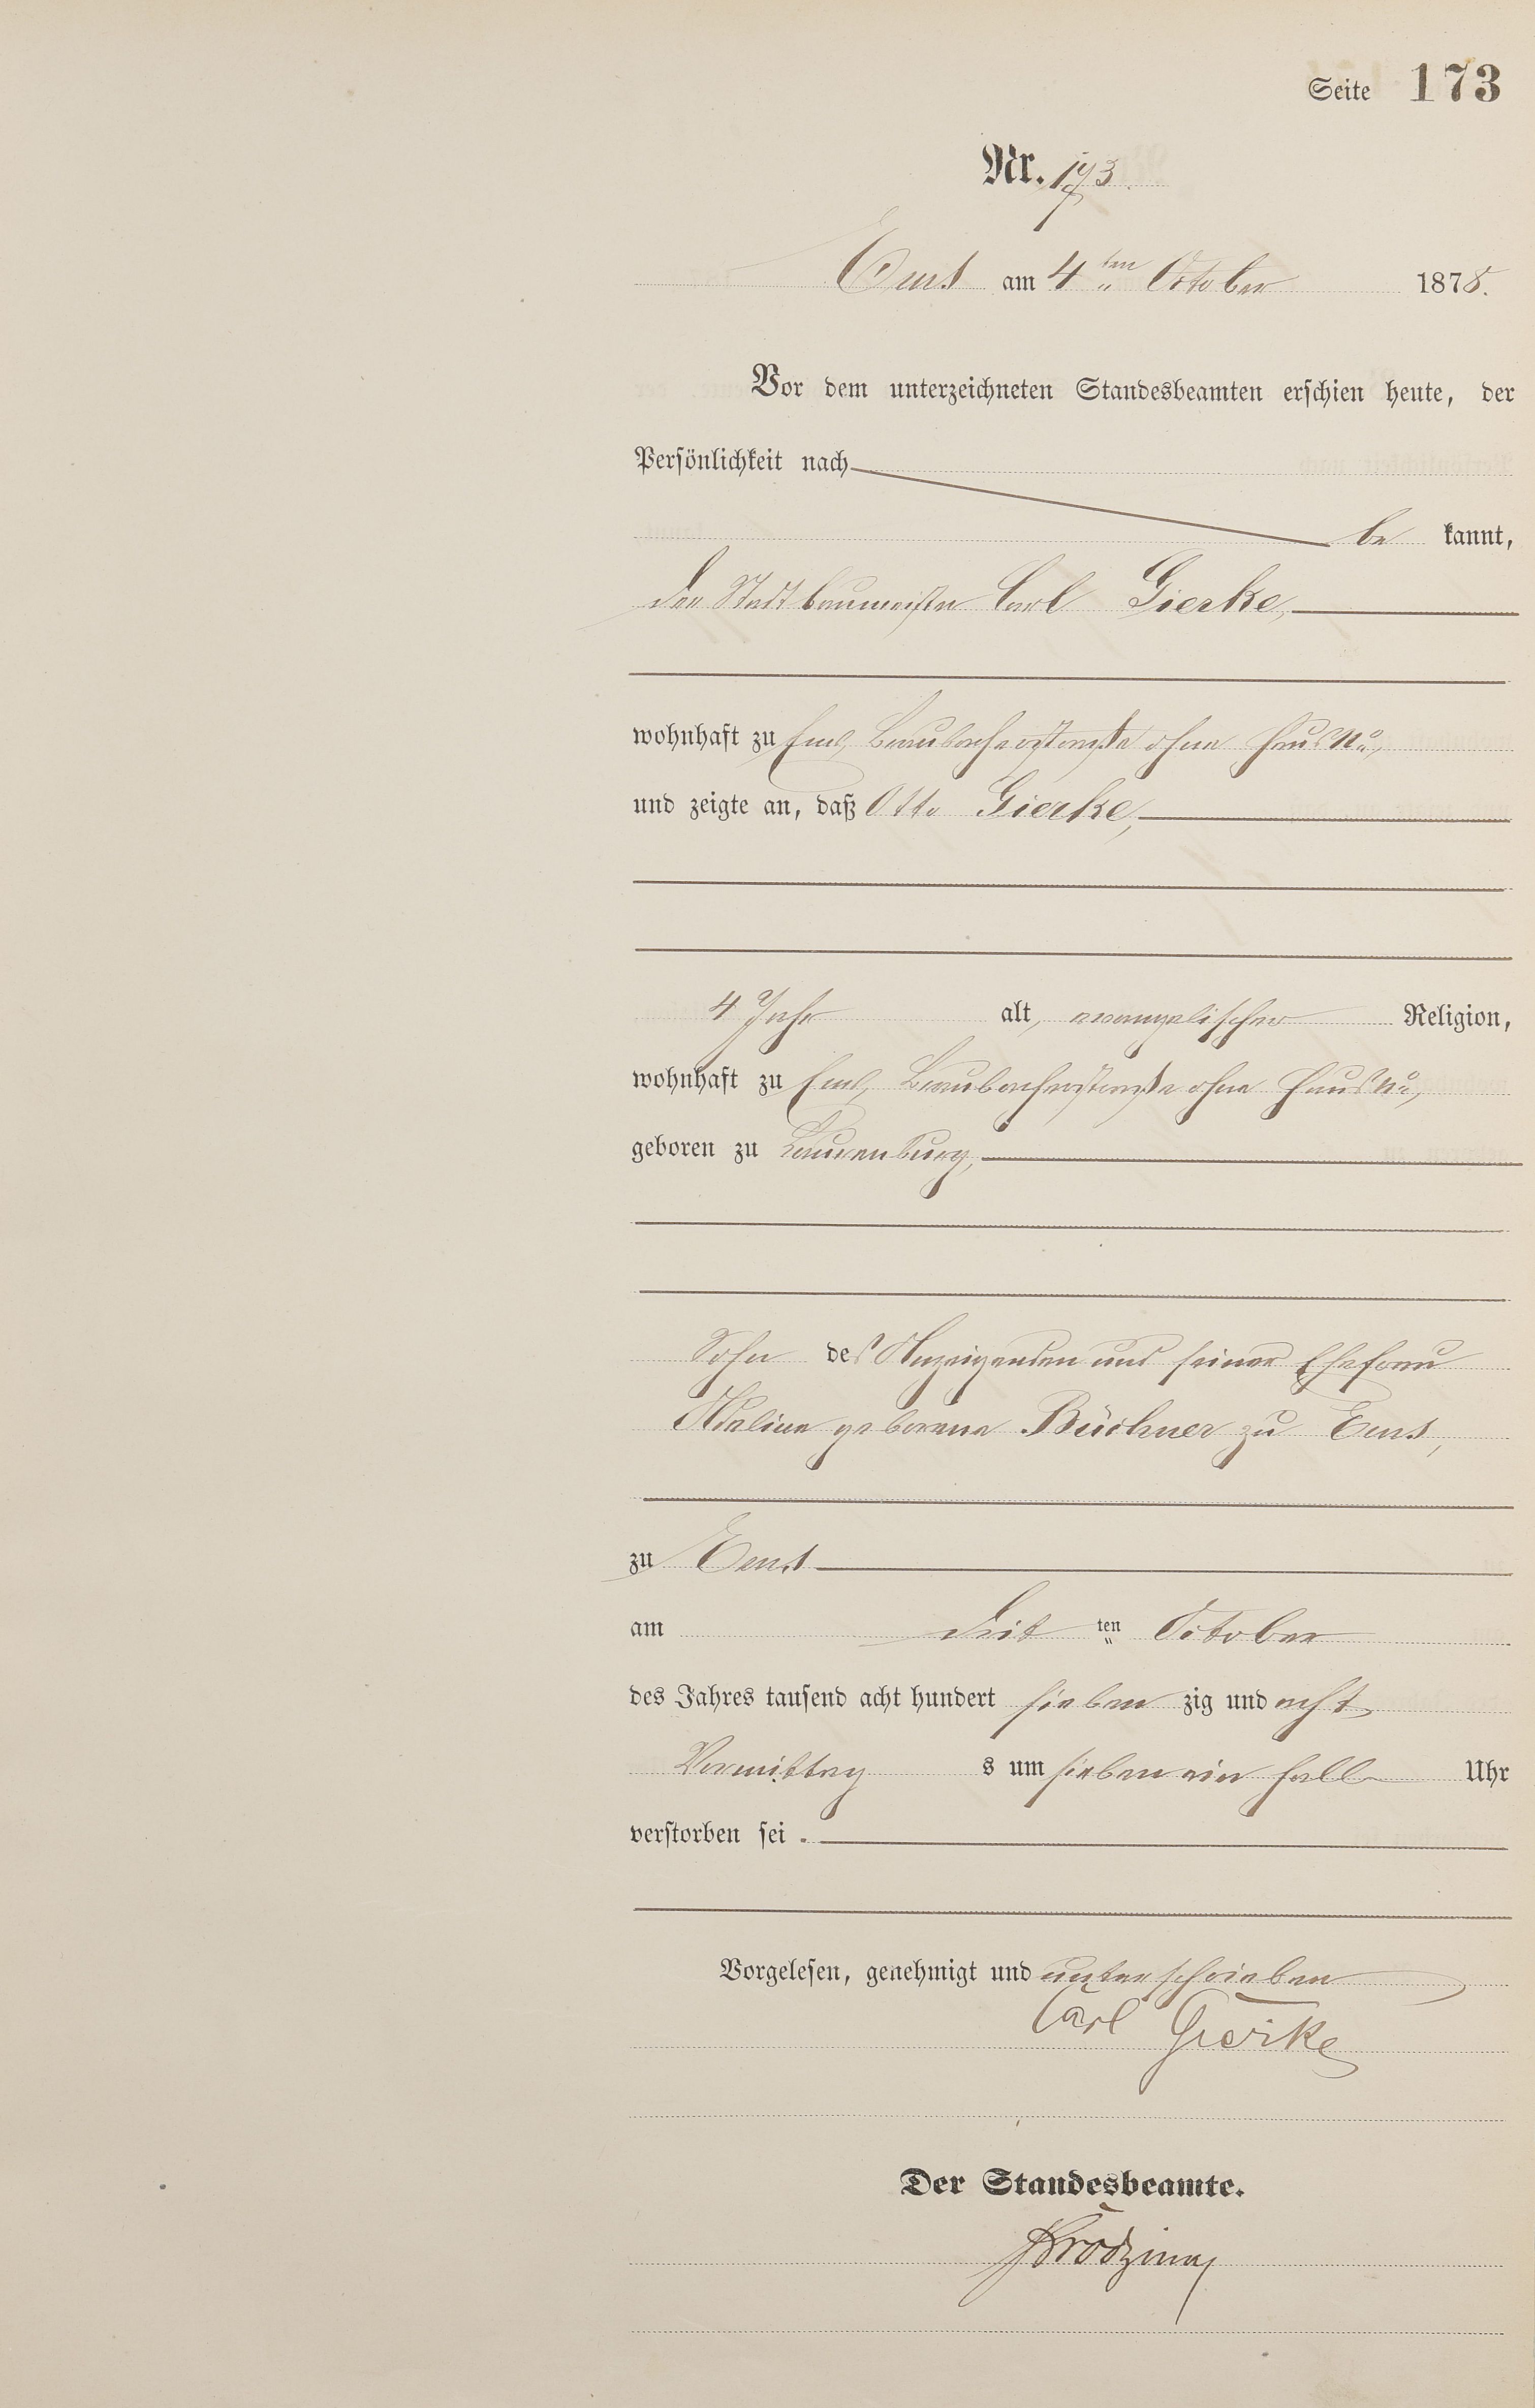 Seite 173
Nr. 173.
Ems am 4 ten October 1878.
Vor dem unterzeichneten Standesbeamten erschien heute, der
Persönlichkeit nach
be kannt,
der Stadtbaumeister Carl Gierke,
wohnhaft zu Ems, Braubacherstraße ohne Haus No,
und zeigte an, daß Otto Gierke,
4 Jahr alt, evangelischer Religion,
wohnhaft zu Ems, Braubacherstraße ohne Haus No,
geboren zu Laurenburg,
Sohn des Anzeigenden und seiner Ehefrau
Adeline geborene Büchner zu Ems,
zu Ems
am drit ten October
des Jahres tausend acht hundert sieben zig und acht
Vormittag s um sieben ein halb Uhr
verstorben sei.
Vorgelesen, genehmigt und unterschrieben
Carl Gierke
Der Standesbeamte.